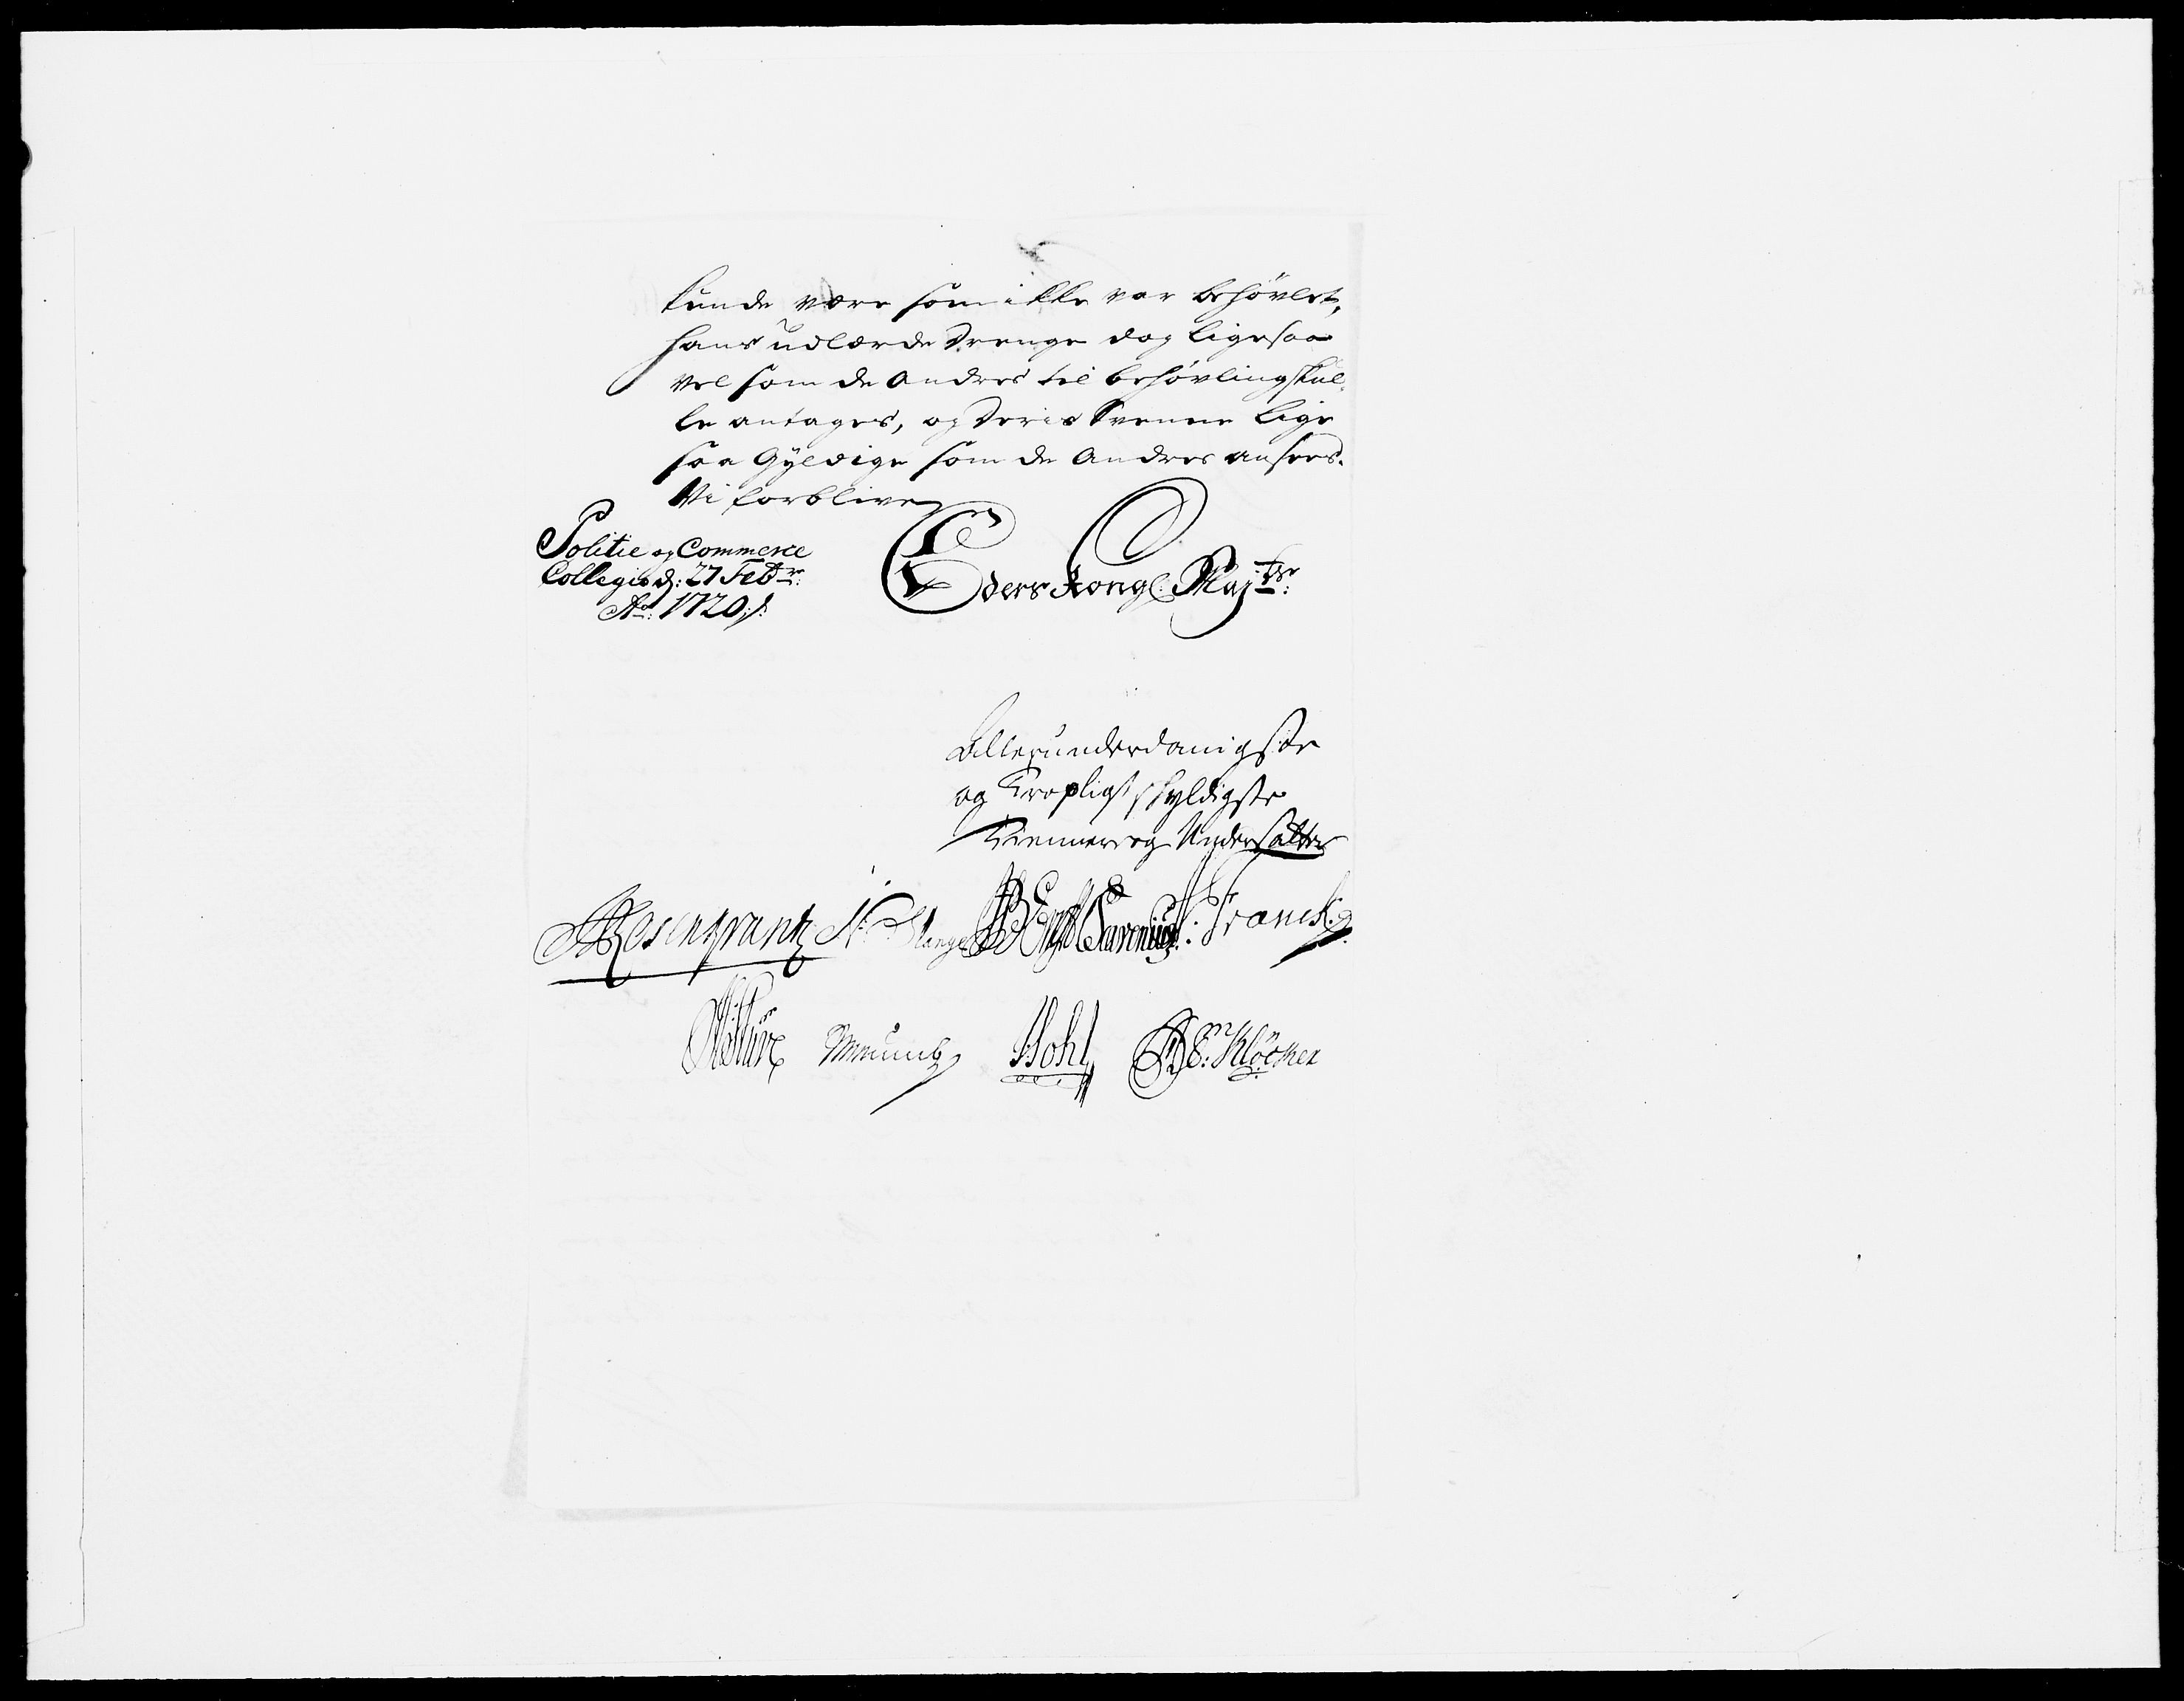 kunde være som ikke var behøvlet,
hans udlærde Drenge dog ligesaa
vel som de Andres til behøvling skul-
le antages, og deris Svenne lige
saa Gyldige som de Andres ansees.
Vi forblive
Politie og Commerce
Collegio d: 27 Febr:
Ao: 1720 ./.
Eders Kongl: Majts:
Allerunderdanigste
og Troepligtskyldigste
Tienner og Undersatter
Rosenkrantz N: Slange Severin: Franck
Munch Hohl E: Klöcker